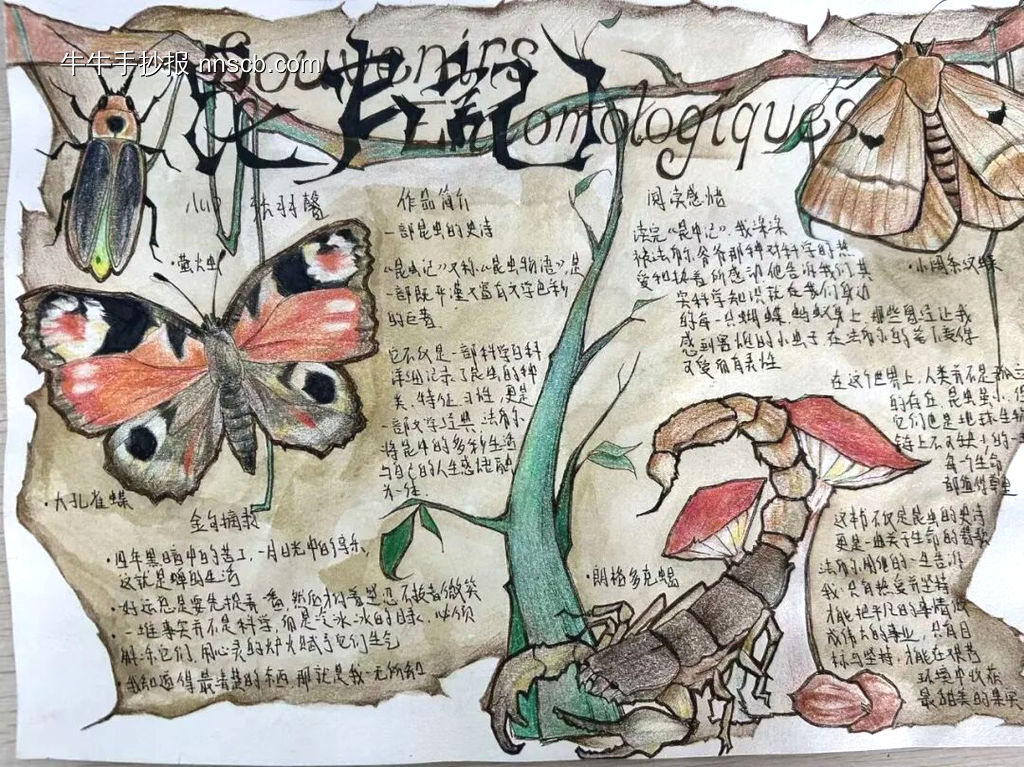 牛牛手抄报 nnscb.com
Souvenirs
昆虫记
Entomologiques
张羽馨
·萤火虫
作品简介
一部昆虫的史诗
《昆虫记》又称《昆虫物语》,是
一部既严谨又富有文学色彩
的巨著
它不仅是一部科学百科
详细记录了昆虫的种
类、特征、习性,更是
一部文学经典,法布尔
将昆虫的多彩生活
与自己的人生感悟融
为一体
阅读感悟
读完《昆虫记》,我深深
被法布尔爷爷那种对科学的热
爱和执着所感动他告诉我们其
实科学知识就在我们身边
的每一只蝴蝶 蚂蚁身上 那些曾经让我
感到害怕的小虫子 在法布尔的笔下变得
可爱而有灵性
在这个世界上,人类并不是孤立
的存在 昆虫虽小,但
它们也是地球生物
链上不可缺少的一
每一个生命
都值得尊重
这书不仅是昆虫的史诗
更是一曲关于生命的赞歌
法布尔用他的一生告诉
我 只有热爱和坚持
才能把平凡的事情做
成伟大的事业,只有目
标与坚持,才能在艰苦
环境中收获
最甜美的果实
·大孔雀蝶
金句摘抄
·四年黑暗中的苦工,一月日光中的享乐,
这就是蝉的生活
·好运总是要先捉弄一番,然后才向着坚忍不拔者微笑
·一堆事实并不是科学,而是冷冰冰的目录,必须
解冻它们,用心灵的炉火赋予它们生气
·我知道得最清楚的东西,那就是我一无所知
·朗格多克蝎